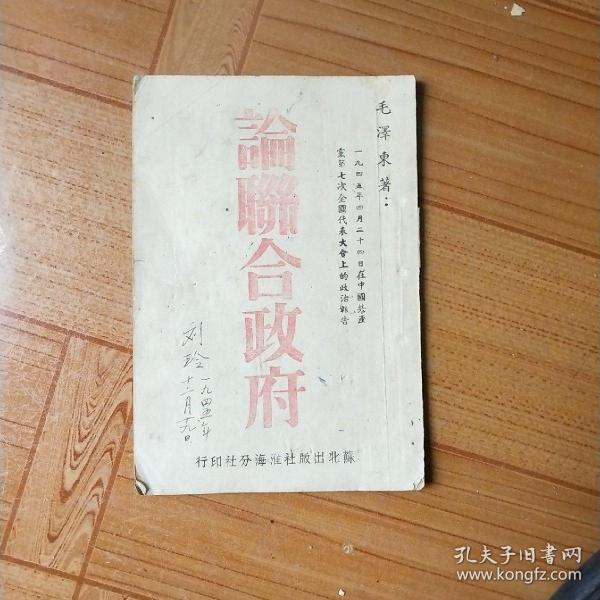 毛澤東著：
一九四五年四月二十四日在中國共產
黨第七次全國代表大會上的政治報告
論聯合政府
刘玲
一九四五年
十二月十九日
蘇北出版社淮海分社印行
孔夫子旧书网
www.kongfz.com